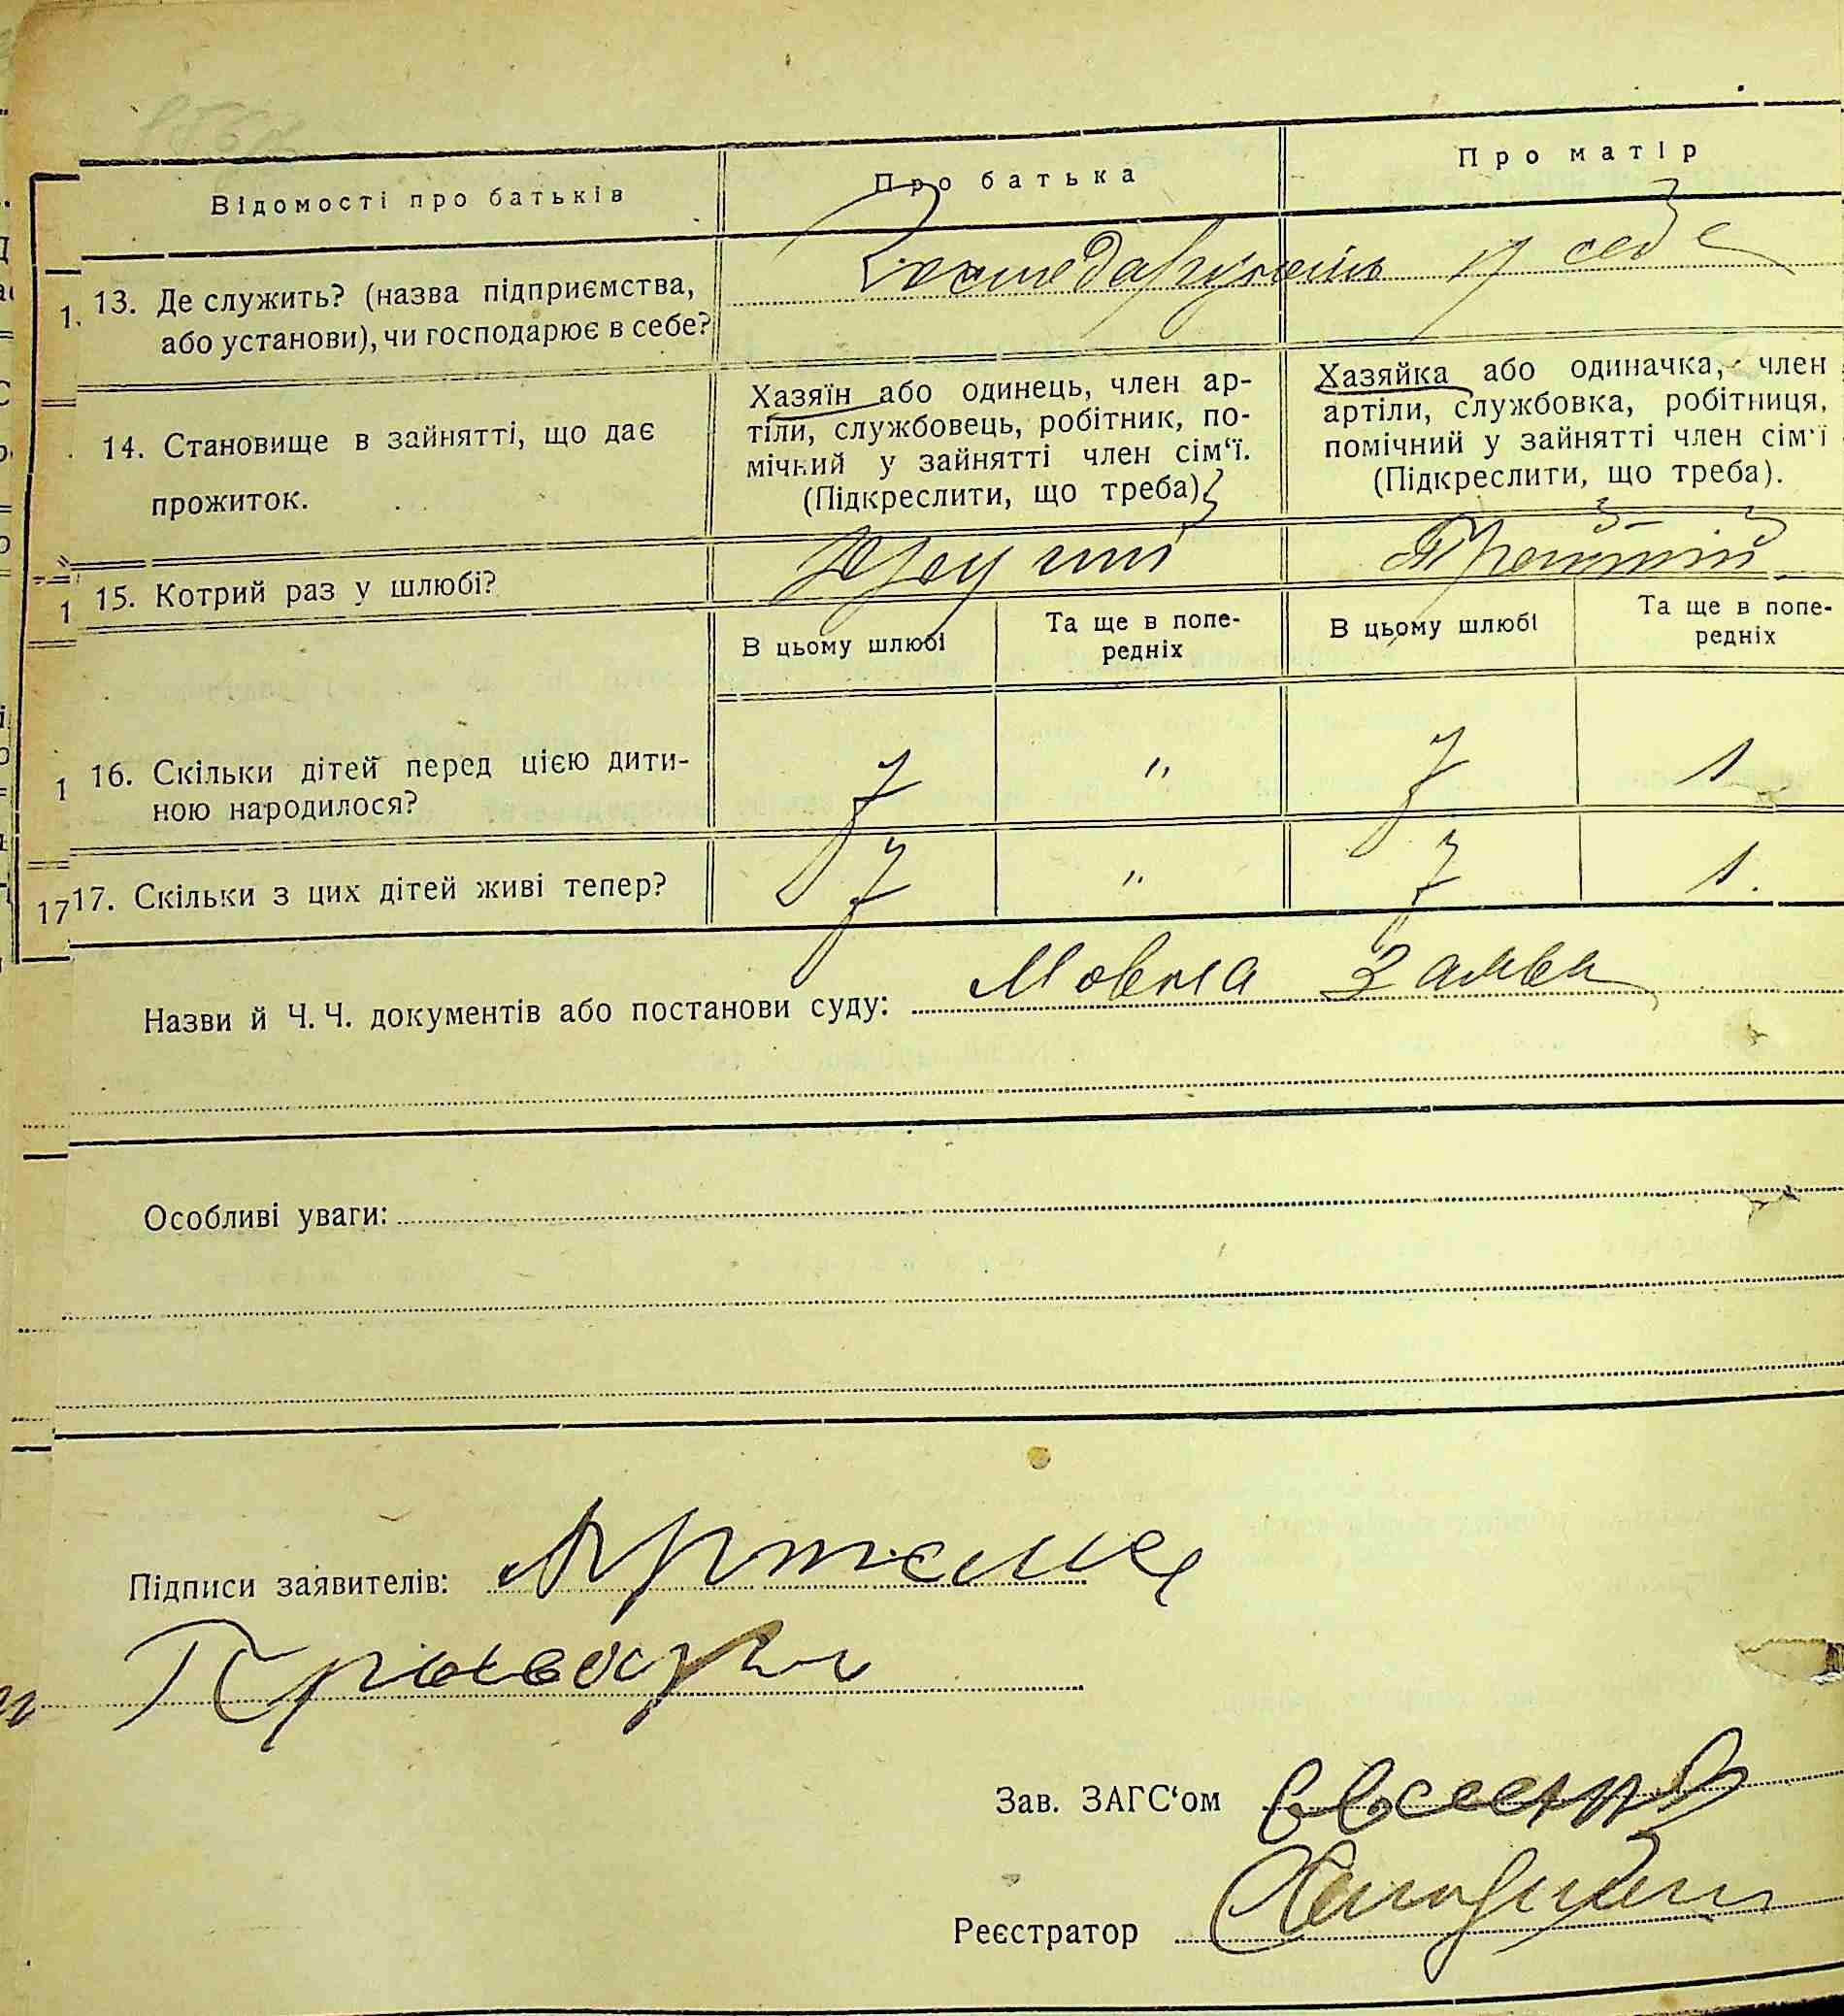 Відомості про батьків
Про батька
Про матір
13. Де служить? (назва підприємства,
або установи), чи господарює в себе?
Господарують у себе
14. Становище в зайнятті, що дає
прожиток.
Хазяїн або одинець, член ар-
тіли, службовець, робітник, по-
мічний у зайнятті член сім'ї.
(Підкреслити, що треба)
Хазяйка або одиначка, член
артіли, службовка, робітниця,
помічний у зайнятті член сім'ї
(Підкреслити, що треба).
15. Котрий раз у шлюбі?
Другий
Третій
В цьому шлюбі
Та ще в попе-
редніх
В цьому шлюбі
Та ще в попе-
редніх
16. Скільки дітей перед цією дити-
ною народилося?
7 " 7 1
17. Скільки з цих дітей живі тепер?
7 " 7 1.
Назви й Ч. Ч. документів або постанови суду: Мовна Заява
Особливі уваги:
Підписи заявителів:
Зав. ЗАГС'ом
Реєстратор